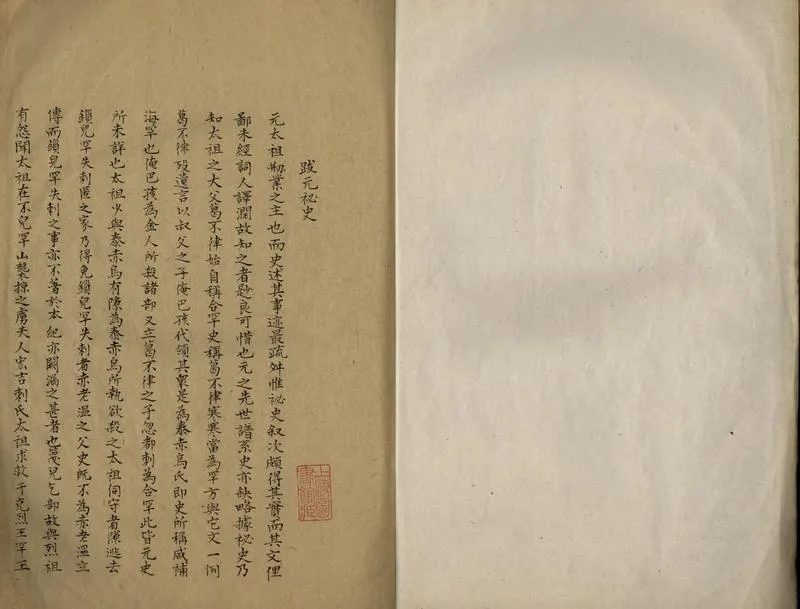 跋元祕史
元太祖刱業之主也而史述其事迹最疏舛惟祕史叙次頗得其實而其文俚
鄙未經詞人譯潤故知之者尟良可惜也元之先世譜系史亦缺略據祕史乃
知太祖之大父葛不律始自稱合罕史稱葛不律寒寒當為罕方與它文一例
葛不律歿遺言以叔父之子俺巴孩代領其衆是為泰赤烏氏即史所稱咸補
海罕也俺巴孩為金人所殺諸部又立葛不律之子忽都剌為合罕此皆元史
所未詳也太祖少與泰赤烏有隙為泰赤烏所執欲殺之太祖伺守者隙逃去
鎖兒罕失剌匿之家乃得免鎖兒罕失剌者赤老溫之父史既不為赤老溫立
傳而鎖兒罕失剌之事亦不著於本紀亦闕漏之甚者也蔑兒乞部故與烈祖
有怨聞太祖在不兒罕山襲掠之虜夫人宏吉剌氏太祖求救于克烈王罕王
上海圖
書館藏